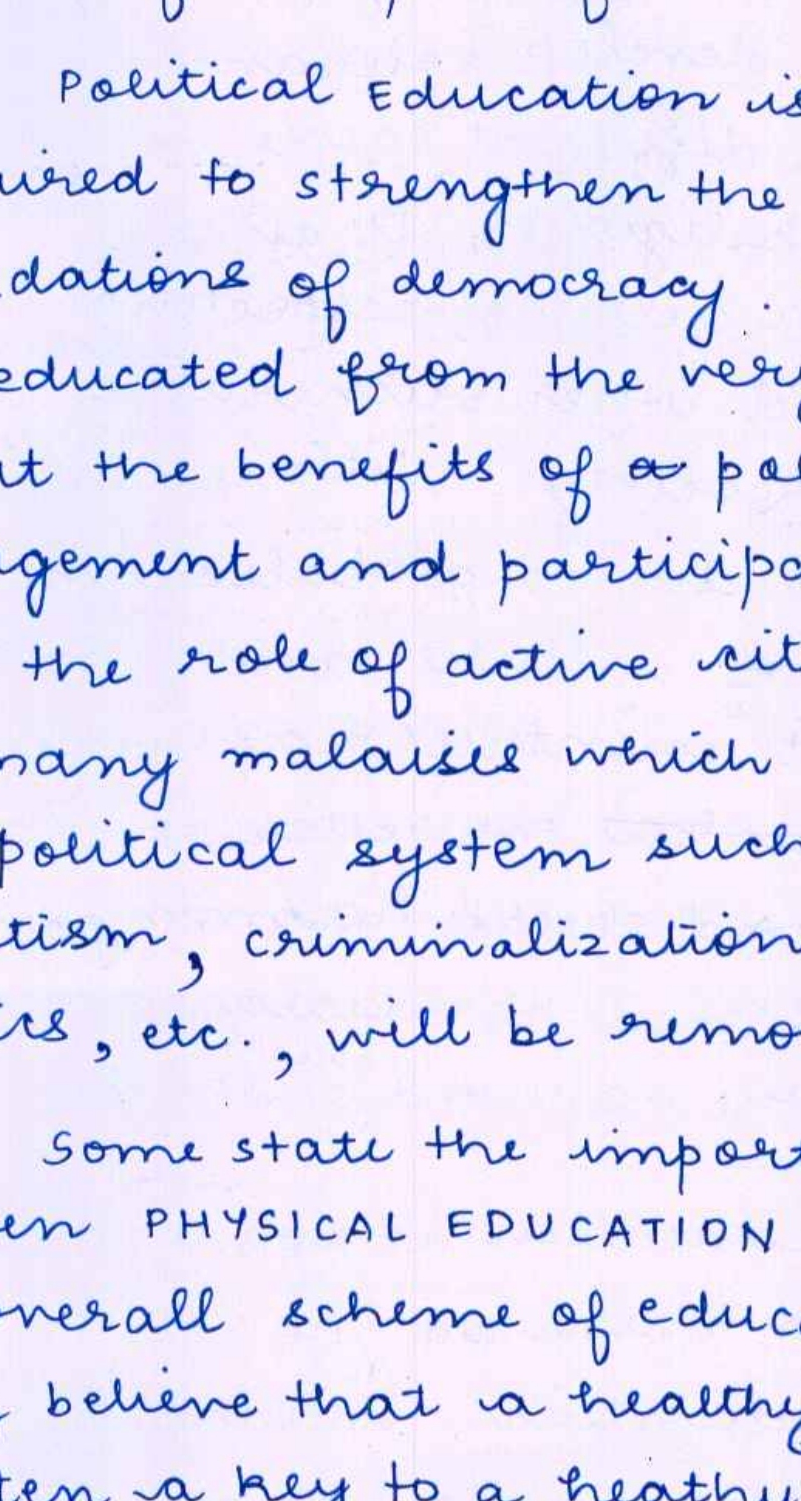 Political Education is
uired to strengthen the
dations of democracy.
educated from the very
ut the benefits of a pol
gement and participa
the role of active cit
many malaises which
political system such
tism, criminalization
ics, etc., will be remo
Some state the import
en PHYSICAL EDUCATION
overall scheme of educa
believe that a healthy
ten a key to a heathy